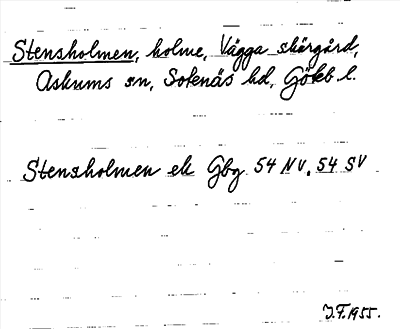 Stensholmen, holme, Vägga skärgård,
Askums sn, Sotenäs hd, Göteb l.
Stensholmen ek Gbg 54 NV, 54 SV
J.F. 1955.